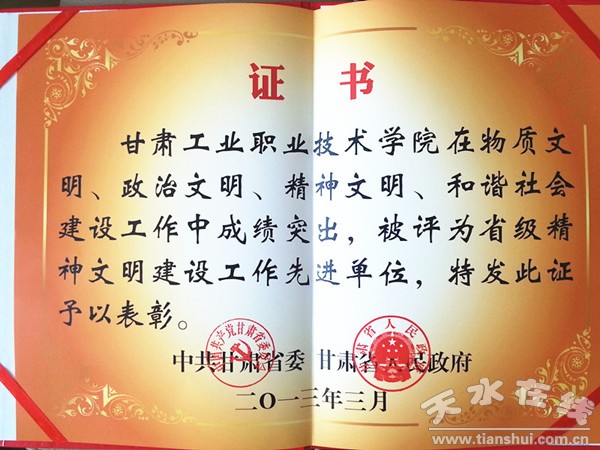 证 书
甘肃工业职业技术学院在物质文
明、政治文明、精神文明、和谐社会
建设工作中成绩突出，被评为省级精
神文明建设工作先进单位，特发此证
予以表彰。
中共甘肃省委 甘肃省人民政府
二〇一三年三月
中国共产党甘肃省委员会
甘肃省人民政府
天水在线
www.tianshui.com.cn